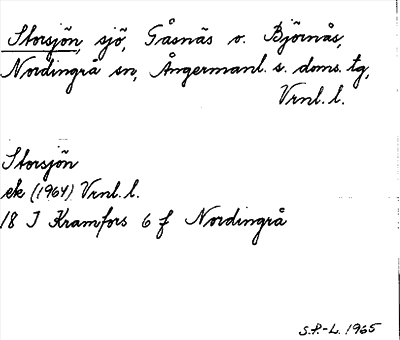 Storsjön, sjö, Gåsnäs o. Björnås,
Nordingrå sn, Ångermanl. s. doms. tg,
Vrnl. l.
Storsjön
ek (1964) Vrnl. l.
18 I Kramfors 6 f Nordingrå
S.P.-L. 1965